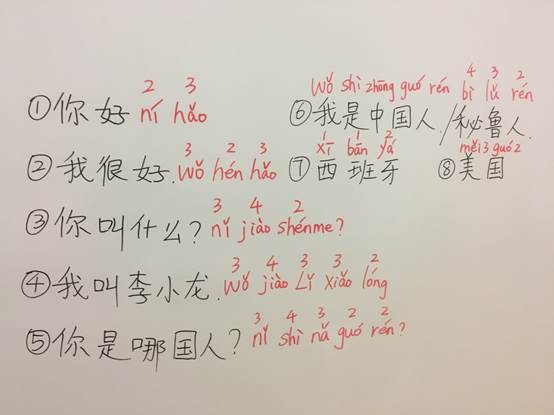 2 3
①你好 ní hǎo
3 2 3
②我很好. wǒ hén hǎo
3 4 2
③你叫什么? nǐ jiào shénme?
3 4 3 3 2
④我叫李小龙. wǒ jiào Lǐ xiǎo lóng
3 4 3 2 2
⑤你是哪国人? nǐ shì nǎ guó rén?
4 3 2
wǒ shì zhōng guó rén bì lǔ rén
⑥我是中国人./秘鲁人.
1 1 2
xī bān yá měi3 guó2
⑦西班牙 ⑧美国